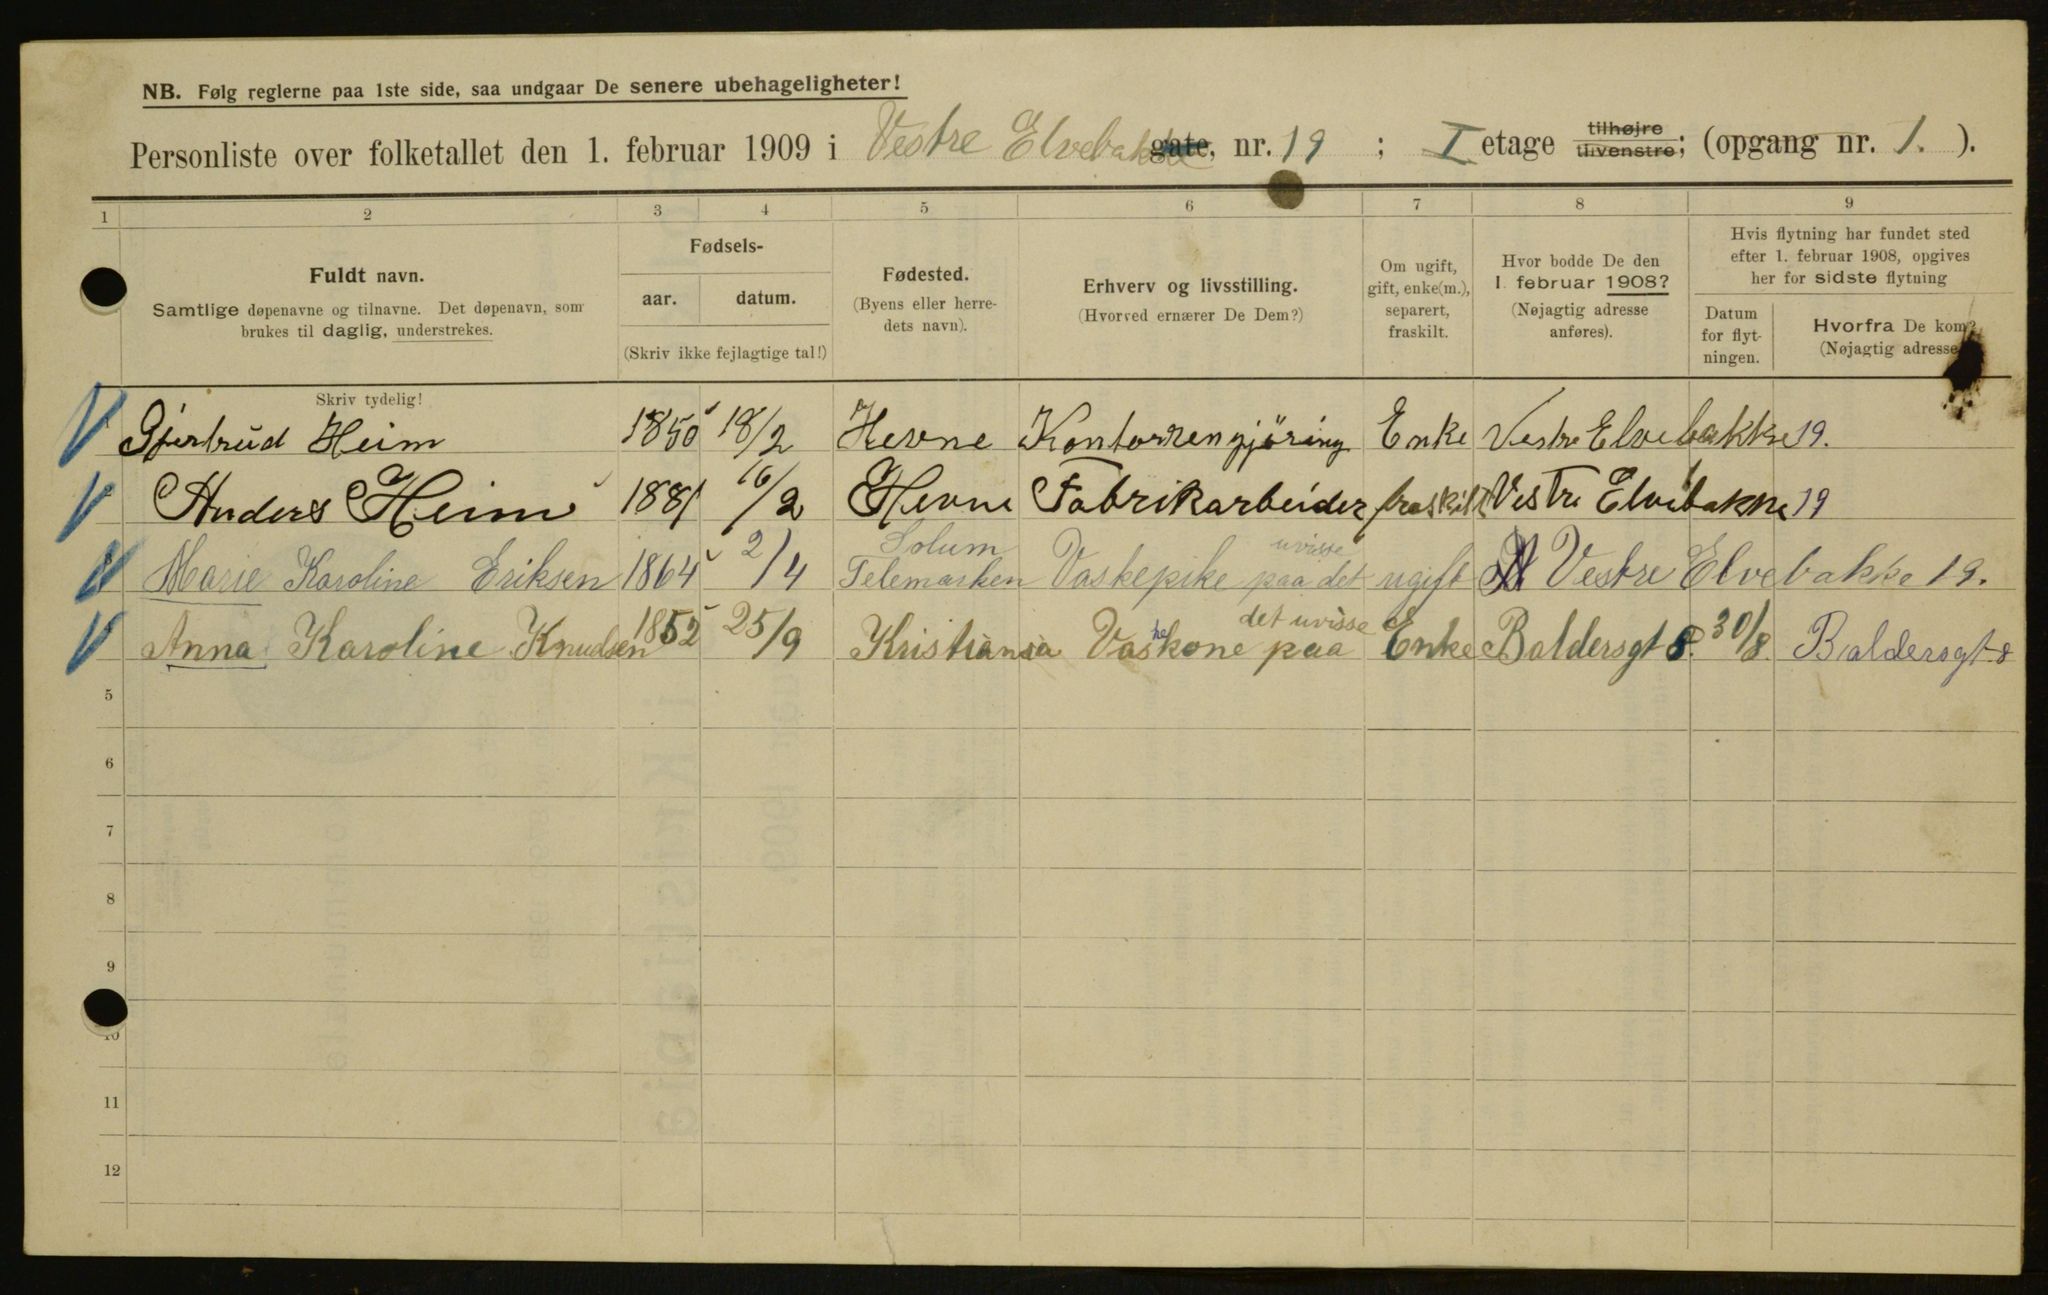 NB. Følg reglerne paa 1ste side, saa undgaar De senere ubehageligheter!
Personliste over folketallet den 1. februar 1909 i Vestre Elvebakke gate, nr. 19 ; I etage tilhøjre tilvenstre; (opgang nr. 1. ).
1 2 3 4 5 6 7 8 9
Fuldt navn.
Samtlige døpenavne og tilnavne. Det døpenavn, som
brukes til daglig, understrekes.
Skriv tydelig!
Fødsels-
aar. datum.
(Skriv ikke fejlagtige tal!)
Fødested.
(Byens eller herre-
dets navn).
Erhverv og livsstilling.
(Hvorved ernærer De Dem?)
Om ugift,
gift, enke(m.),
separert,
fraskilt.
Hvor bodde De den
1. februar 1908?
(Nøjagtig adresse
anføres).
Hvis flytning har fundet sted
efter 1. februar 1908, opgives
her for sidste flytning
Datum
for flyt-
ningen.
Hvorfra De kom?
(Nøjagtig adresse
Gjertrud Heim 1850 18/2 Hevne Kontorrengjöring Enke Vestre Elvebakke 19.
Anders Heim 1881 16/2 Hevne Fabrikarbeider fraskilt Vestre Elvebakke 19
Marie Karoline Eriksen 1864 2/4 Solum Telemarken Vaskepike paa det uvisse ugift Vestre Elvebakke 19.
Anna Karoline Knudsen 1852 25/9 Kristiania Vaskekone paa det uvisse Enke Baldersgt 8. 30/8. Baldersgt 8
5
6
7
8
9
10
11
12